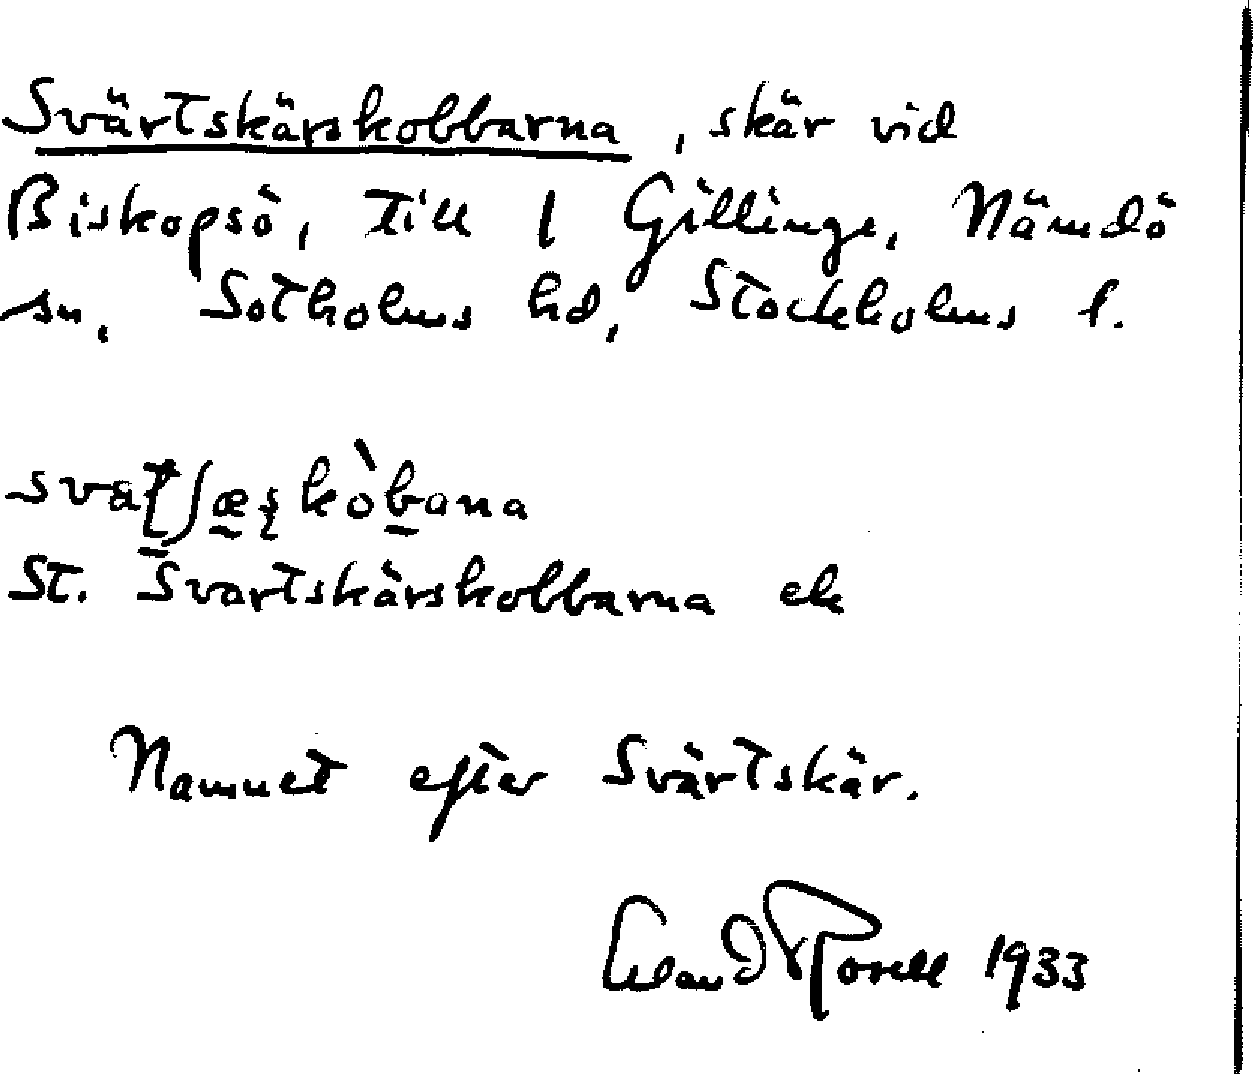 Svärtskärskobbarna, skär vid
Biskopsö, till 1 Gillinge, Nämdö
sn, Sotholms hd, Stockholms l.
svaʈʃæʂkòbana
St. Svartskärskobbarna ek
Namnet efter Svärtskär.
1933